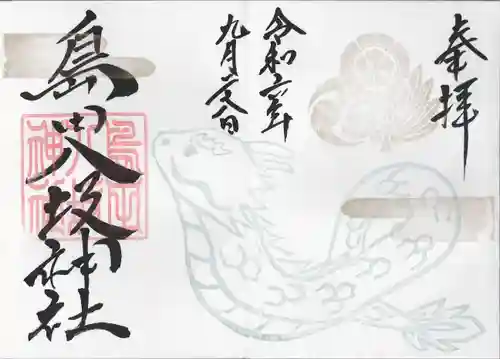 奉拝
令和六年
九月 日
島田八坂神社
島田八坂神社